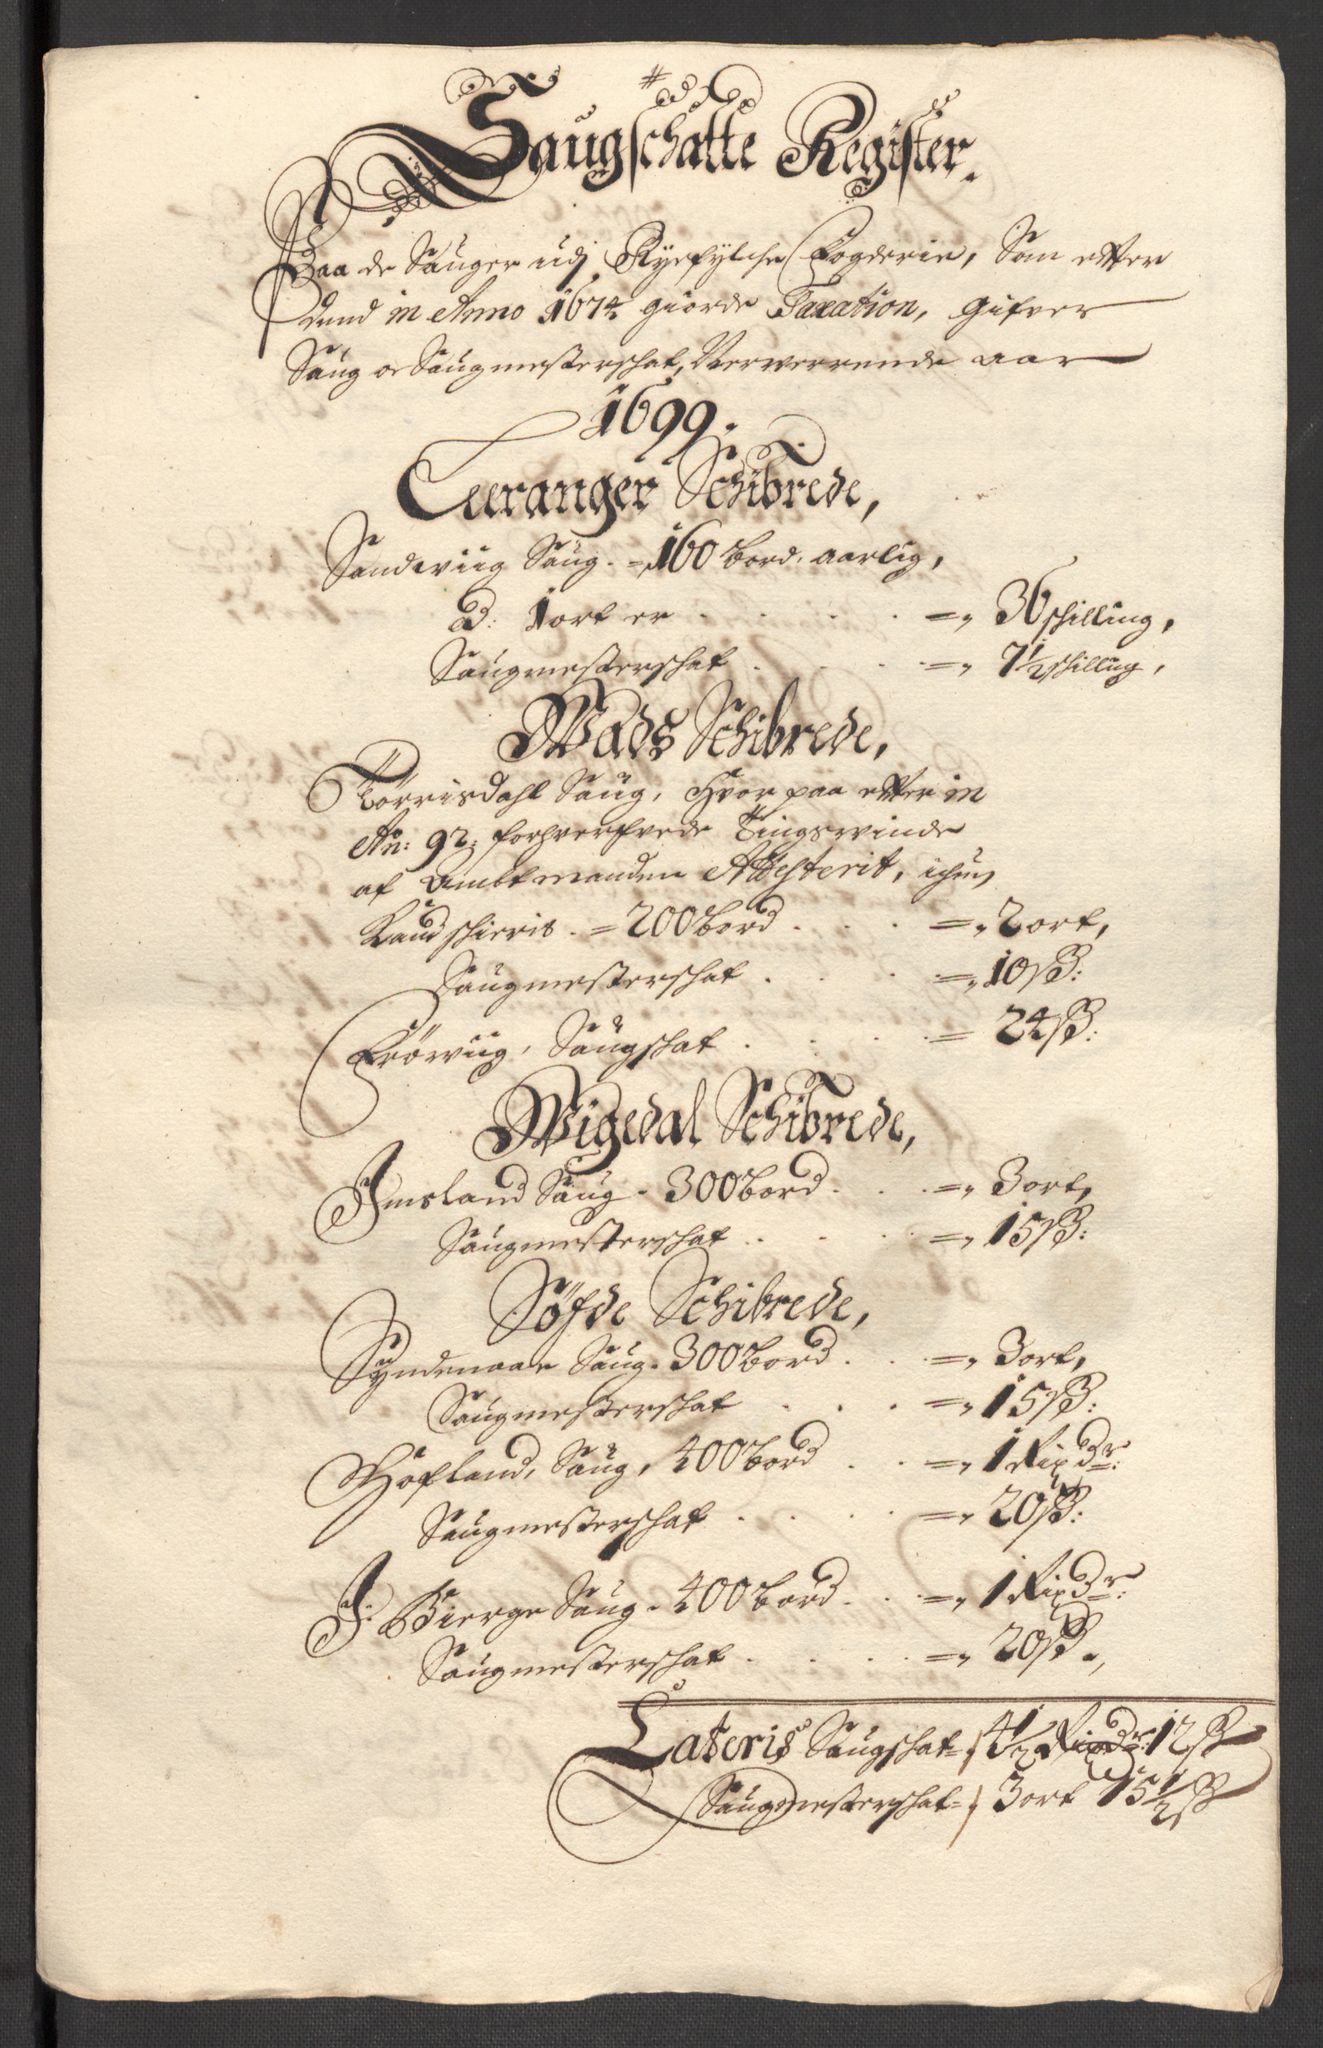 Saugschatte Register.
Paa de Sauger udj Ryefylche Fogderie, Som efter
dend in Anno 1674 giorde Taxation, Gifver
Saug oc Saugmesterschat, Nerwerrende aar
1699.
Leeranger Schibrede,
Sandwiig Saug. = 160 bord. aarlig,
ad: 1 ort er . . . . =, 36 schilling,
Saugmesterschat . . . =, 7 1/2 schilling,
Wads Schibrede,
Tørrisdahl Saug, Hvor paa efter in
An: 92: forhverfvede Tingswinde
af Ambtmanden Attesterit, ichun
Kand schieris. = 200 bord . . . =, 2 ort,
Saugmesterschat . . . =, 10 ß:
Frøwiig, Saugschat . . . = 24 ß:
Wigedal Schibrede,
Imsland Saug. 300 bord . . . =, 3 ort,
Saugmesterschat . . . =, 15 ß:
Søfde Schibrede,
Syndenaae Saug. 300 bord . . . =, 3 ort,
Saugmesterschat . . . =, 15 ß:
Hofland, Saug, 400 bord . . =, 1 Rixdr:
Saugmesterschat . . . . =, 20 ß:
J: Bierge Saug. 400 bord . . . =, 1 Rixdr:
Saugmesterschat . . . . =, 20 ß.,
Lateris Saugschat =, 4 1/2 Rixdr: 12 ß
Saugmesterschat =, 3 ort 15 1/2 ß